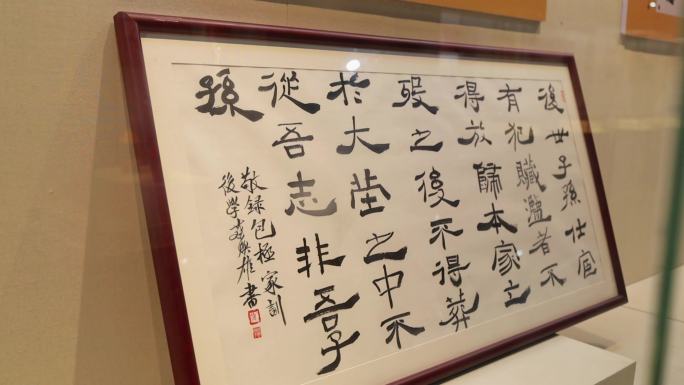 後世子孫仕宦
有犯贓濫者不
得放歸本家亡
歿之後不得葬
於大塋之中不
從吾志非吾子
孫
敬録包拯家訓
後學雄書